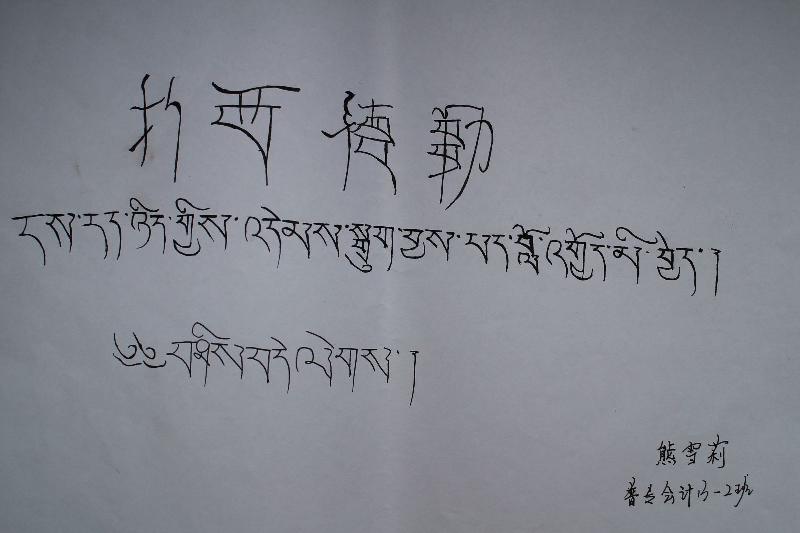 扎西德勒
ངས་རང་ཉིད་ཀྱིས་འདེམས་སྒྲུག་བྱས་པར་བློ་འགྱོད་མི་བྱེད་།
༄༅ བཀྲིས་བདེ་ལེགས་།
熊雪莉
普专会计13-2班